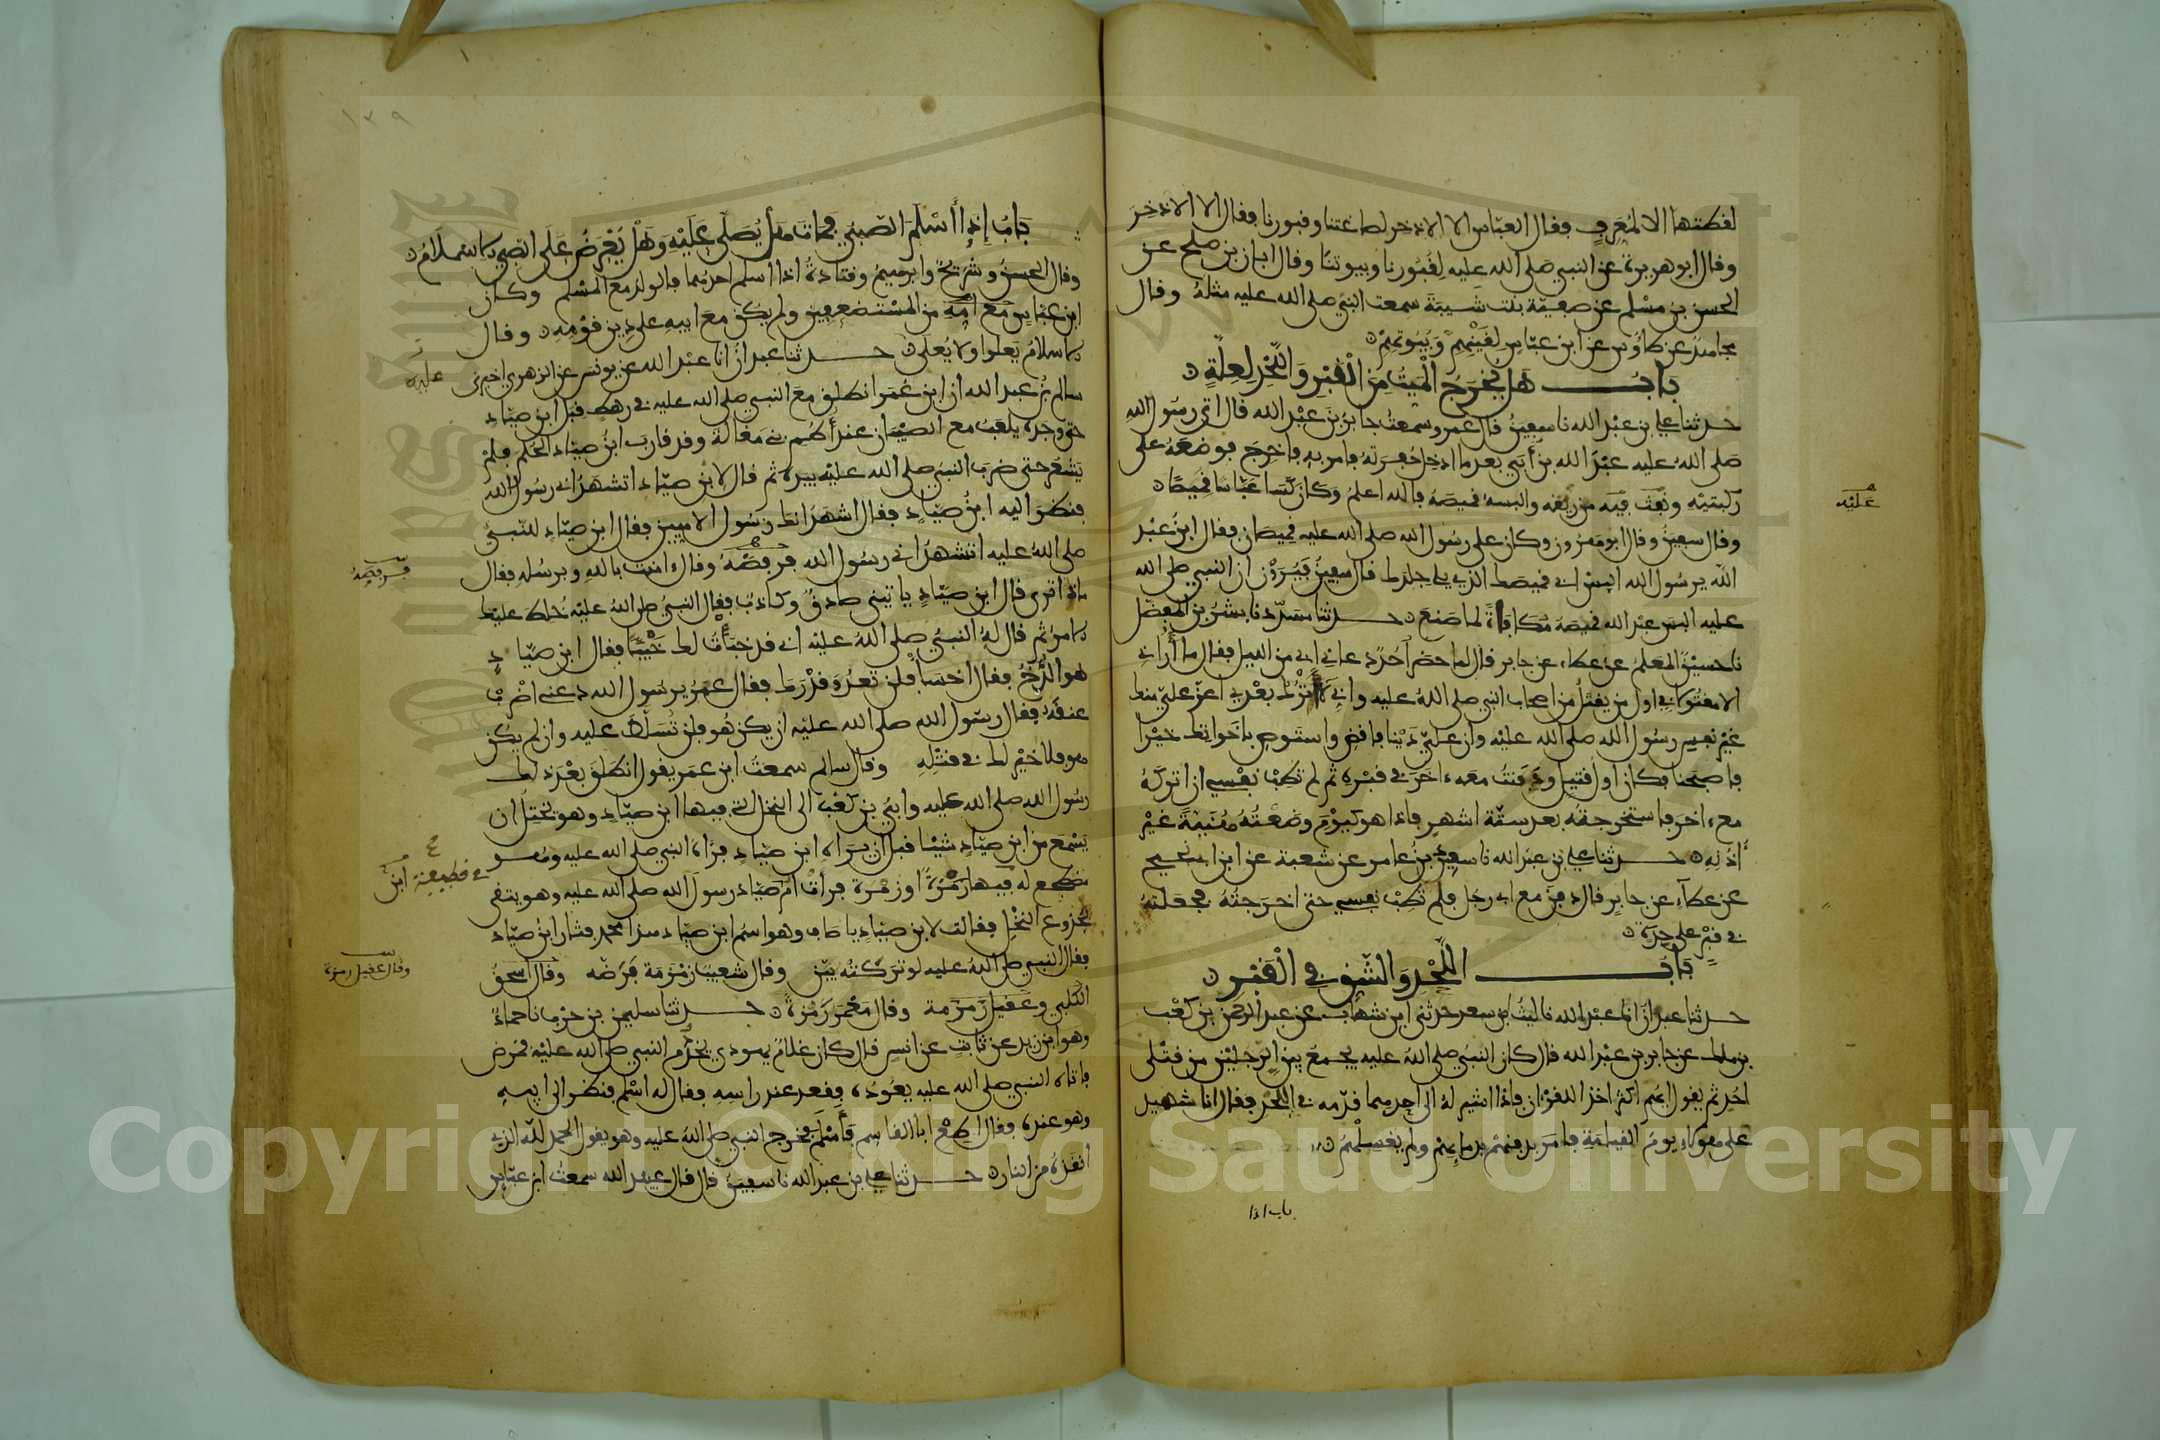 لقطتها الا لمعرف فقال العباس الا الاذخر لصاغتنا وقبورنا فقال الا الاذخر
وقال ابو هريرة عن النبي صلى الله عليه لقبورنا وبيوتنا وقال ابان بن صلح عن
الحسن بن مسلم عن صفية بنت شيبة سمعت النبي صلى الله عليه مثله وقال
مجاهد عن طاوس عن ابن عباس لقينهم وبيوتهم
باب هل يخرج الميت من القبر واللحد لعلة
حدثنا علي بن عبد الله نا سفين قال عمرو سمعت جابر بن عبد الله قال اتى رسول الله
صلى الله عليه عبد الله بن أبي بعد ما ادخل حفرته فامر به فاخرج فوضعه على
ركبتيه ونفث فيه من ريقه والبسه قميصه فالله اعلم وكان كسا عباسا قميصا
عليه
وقال سفين وقال ابو هرون وكان على رسول الله صلى الله عليه قميصان فقال ابن عبد
الله يرسول الله البس ابي قميصك الذي يلي جلدك قال سفين فيرون ان النبي صلى الله
عليه البس عبد الله قميصه مكافاة لما صنع حدثنا مسدد نا بشر بن المفضل
نا حسين المعلم عن عطاء عن جابر قال لما حضر أحد دعاني أبي من الليل فقال ما أراني
الا مقتولا في اول من يقتل من اصحاب النبي صلى الله عليه واني لا أترك بعدي اعز علي منك
غير نفس رسول الله صلى الله عليه وان علي دينا فاقض واستوص باخواتك خيرا
فاصبحنا فكان اول قتيل ودفنت معه ءاخر في قبره ثم لم تطب نفسي ان اتركه
مع ءاخر فاستخرجته بعد ستة اشهر فاذا هو كيوم وضعته هنية غير
أذنه حدثنا علي بن عبد الله نا سعيد بن عامر عن شعبة عن ابن ابي نجيح
عن عطاء عن جابر قال دفن مع ابي رجل فلم تطب نفسي حتى اخرجته فجعلته
في قبر على حدة
باب اللحد والشق في القبر
حدثنا عبدان انا عبد الله نا ليث بن سعد حدثني ابن شهاب عن عبد الرحمن بن كعب
بن ملك عن جابر بن عبد الله قال كان النبي صلى الله عليه يجمع بين الرجلين من قتلى
احد ثم يقول ايهم اكثر اخذا للقرءان فاذا اشير له الى احدهما قدمه في اللحد فقال انا شهيد
على هؤلاء يوم القيامة فامر بدفنهم بدمائهم ولم يغسلهم
باب اذا
١٣٩
باب إذا أسلم الصبي فمات هل يصلى عليه وهل يعرض على الصبي الاسلام
وقال الحسن وشريح وابرهيم وقتادة اذا أسلم احدهما فالولد مع المسلم وكان
ابن عباس مع امه من المستضعفين ولم يكن مع ابيه على دين قومه وقال
الاسلام يعلوا ولا يعلى حدثنا عبدان انا عبد الله عن يونس عن الزهري اخبرني
عليه
سالم بن عبد الله ان ابن عمر انطلق مع النبي صلى الله عليه في رهط قبل ابن صياد
حتى وجده يلعب مع الصبيان عند أطم بني مغالة وقد قارب ابن صياد الحلم فلم
يشعر حتى ضرب النبي صلى الله عليه بيده ثم قال لابن صياد اتشهد اني رسول الله
فنظر اليه ابن صياد فقال اشهد انك رسول الاميين فقال ابن صياد للنبي
صلى الله عليه اتشهد اني رسول الله فرفضه وقال ءامنت بالله وبرسله فقال
فرفصه
ماذا ترى قال ابن صياد ياتيني صادق وكاذب فقال النبي صلى الله عليه خلط عليك
الامر ثم قال له النبي صلى الله عليه اني قد خبأت لك خبيئا فقال ابن صياد
هو الدخ فقال اخسأ فلن تعدو قدرك فقال عمر يرسول الله دعني اضرب
عنقه فقال رسول الله صلى الله عليه ان يكن هو فلن تسلط عليه وان لم يكن
هو فلا خير لك في قتله وقال سالم سمعت ابن عمر يقول انطلق بعد ذلك
رسول الله صلى الله عليه وابي بن كعب الى النخل التي فيها ابن صياد وهو يختل ان
يسمع من ابن صياد شيئا قبل ان يراه ابن صياد فرءاه النبي صلى الله عليه وهو
مضطجع له فيها رمزة أو زمرة فرأت ام صياد رسول الله صلى الله عليه وهو يتقي
في قطيفة
بجذوع النخل فقالت لابن صياد يا صاف وهو اسم ابن صياد هذا محمد فثار ابن صياد
فقال النبي صلى الله عليه لو تركته بين وقال شعيب زمزمة فرضه وقال اسحق
وقال عقيل رمزة
الكلبي وعقيل رمرمة وقال معمر رمزة حدثنا سليمن بن حرب نا حماد
وهو ابن زيد عن ثابت عن انس قال كان غلام يهودي يخدم النبي صلى الله عليه فمرض
فاتاه النبي صلى الله عليه يعوده فقعد عند راسه فقال له اسلم فنظر الى ابيه
وهو عنده فقال اطع ابا القاسم فأسلم فخرج النبي صلى الله عليه وهو يقول الحمد لله الذي
أنقذه من النار حدثنا علي بن عبد الله نا سفين قال قال عبيد الله سمعت ابن عباس
Copyright © King Saud University